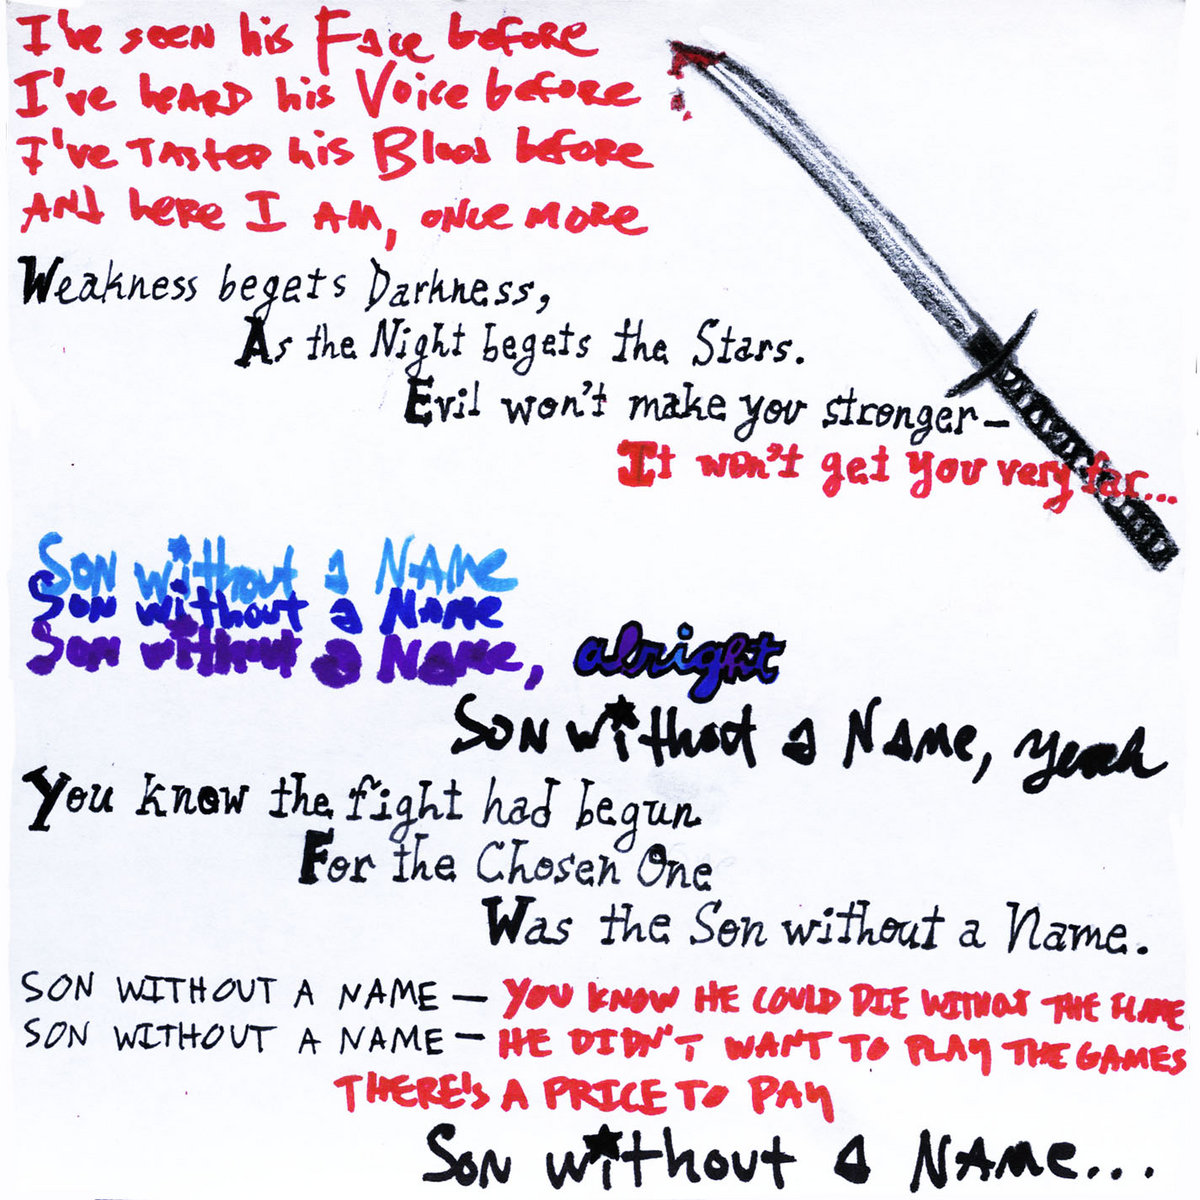 I've seen his Face before
I've heard his Voice before
I've Tasted his Blood before
And here I am, once more
Weakness begets Darkness,
As the Night begets the Stars.
Evil won't make you stronger—
It won't get you very far...
Son without a Name
Son without a Name
Son without a Name, alright
Son without a Name, yeah
You know the fight had begun
For the Chosen One
Was the Son without a Name.
SON WITHOUT A NAME — YOU KNOW HE COULD DIE WITHOUT THE FLAME
SON WITHOUT A NAME — HE DIDN'T WANT TO PLAY THE GAMES
THERE'S A PRICE TO PAY
Son without a Name...